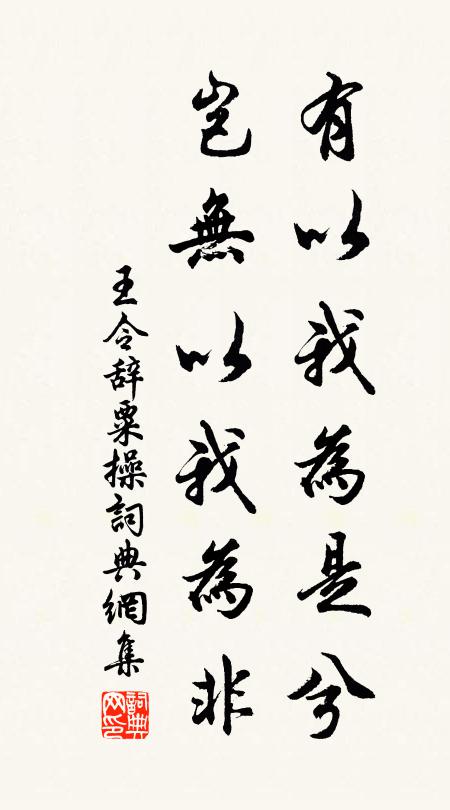 有以我為是兮
豈無以我為非
王令辞粟操詞典網集
詞典網印